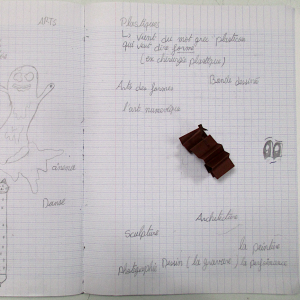 ARTS
Plastiques
↳ vient du mot grec plasticos
qui veut dire formé
(ex chirurgie plastique)
Bande dessiné
Arts des formes
l'art numérique
cinéma
Danse
Architecture
Sculpture
la peinture
Photographie Dessin (la gravure) la performance